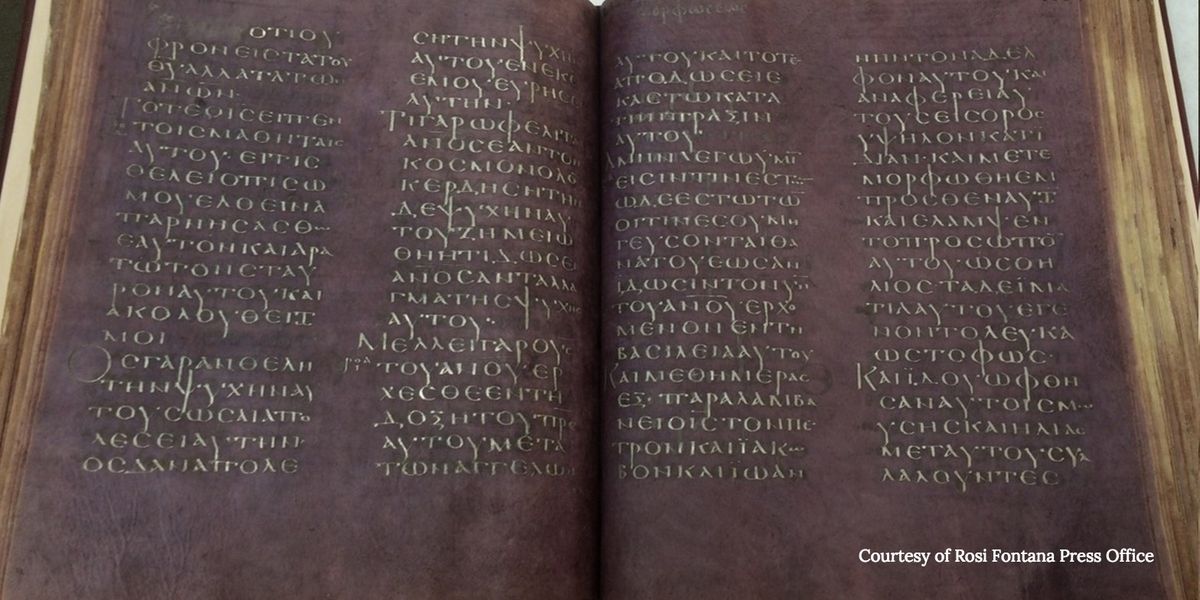 ΟΤΙΟΥ
ΦΡΟΝΕΙϹΤΑΤΟΥ
ΘΥΑΛΛΑΤΑΤΩ̅
ΑΝΩΝ·
ΤΟΤΕΟΙϹΕΙΠΕΝ
ΤΟΙϹΜΑΘΗΤΑΙϹ
ΑΥΤΟΥ·ΕΙΤΙϹ
ΘΕΛΕΙΟΠΙϹΩ
ΜΟΥΕΛΘΕΙΝΑ
ΠΑΡΝΗϹΑϹΘΩ
ΕΑΥΤΟΝΚΑΙΑΡΑ
ΤΩΤΟΝϹΤΑΥ
ΡΟΝΑΥΤΟΥΚΑΙ
ΑΚΟΛΟΥΘΕΙΤΩ
ΜΟΙ
ΟϹΓΑΡΑΝΘΕΛΗ
ΤΗΝΨΥΧΗΝΑΥ
ΤΟΥϹΩϹΑΙΑΠΟ
ΛΕϹΕΙΑΥΤΗΝ·
ΟϹΔΑΝΑΠΟΛΕ
ϹΗΤΗΝΨΥΧΗΝ
ΑΥΤΟΥΕΝΕΚΕ
ΕΜΟΥΕΥΡΗϹΕΙ
ΑΥΤΗΝ·
ΤΙΓΑΡΩΦΕΛΕΙΤΕ
ΑΝΟϹΕΑΝΤΟΝ
ΚΟϹΜΟΝΟΛΟ
ΚΕΡΔΗϹΗΤΗΝ
ΔΕΨΥΧΗΝΑΥ
ΤΟΥΖΗΜΕΙΩ
ΘΗΗΤΙΔΩϹΕΙ
ΑΝΟϹΑΝΤΑΛΛΑ
ΓΜΑΤΗϹΨΥΧΗϹ
ΑΥΤΟΥ·
ΜΕΛΛΕΙΓΑΡΟΥϹ
ΤΟΥΑΝΟΥΕΡ
ΧΕϹΘΕΕΝΤΗ
ΔΟΞΗΤΟΥΠΡϹ
ΑΥΤΟΥΜΕΤΑ
ΤΩΝΑΓΓΕΛΩΝ
ΑΥΤΟΥΚΑΙΤΟΤΕ
ΑΠΟΔΩϹΕΙΕ
ΚΑϹΤΩΚΑΤΑ
ΤΗΝΠΡΑΞΙΝ
ΑΥΤΟΥ·
ΑΜΗΝΛΕΓΩΥΜΙ
ΕΙϹΙΝΤΙΝΕϹΤΩ
ΩΔΕΕϹΤΩΤΩ
ΟΙΤΙΝΕϹΟΥΜΗ
ΓΕΥϹΟΝΤΑΙΘΑ
ΝΑΤΟΥΕΩϹΑΝ
ΙΔΩϹΙΝΤΟΝΥΝ
ΤΟΥΑΝΟΥΕΡΧΟ
ΜΕΝΟΝΕΝΤΗ
ΒΑϹΙΛΕΙΑΑΥΤΟΥ
ΚΑΙΜΕΘΗΜΕΡΑϹ
ΕΞ·ΠΑΡΑΛΑΜΒΑ
ΝΕΙΟΙϹΤΟΝΠΕ
ΤΡΟΝΚΑΙΪΑΚΩ
ΒΟΝΚΑΙΪΩΑΝ
ΝΗΝΤΟΝΑΔΕΛ
ΦΟΝΑΥΤΟΥΚΑΙ
ΑΝΑΦΕΡΕΙΑΥ
ΤΟΥϹΕΙϹΟΡΟϹ
ΥΨΗΛΟΝΚΑΤΙ
ΔΙΑΝ·ΚΑΙΜΕΤΕ
ΜΟΡΦΩΘΗΕΜ
ΠΡΟϹΘΕΝΑΥΤ
ΚΑΙΕΛΑΜΨΕΝ
ΤΟΠΡΟϹΩΠΟ̅
ΑΥΤΟΥΩϹΟΗ
ΛΙΟϹΤΑΔΕΙΜΑ
ΤΙΑΑΥΤΟΥΕΓΕ
ΝΟΝΤΟΛΕΥΚΑ
ΩϹΤΟΦΩϹ·
ΚΑΙΪΔΟΥΩΦΘΗ
ϹΑΝΑΥΤΟΙϹΜΩ
ΥϹΗϹΚΑΙΗΛΙΑϹ
ΜΕΤΑΥΤΟΥϹΥΛ
ΛΑΛΟΥΝΤΕϹ
Courtesy of Rosi Fontana Press Office